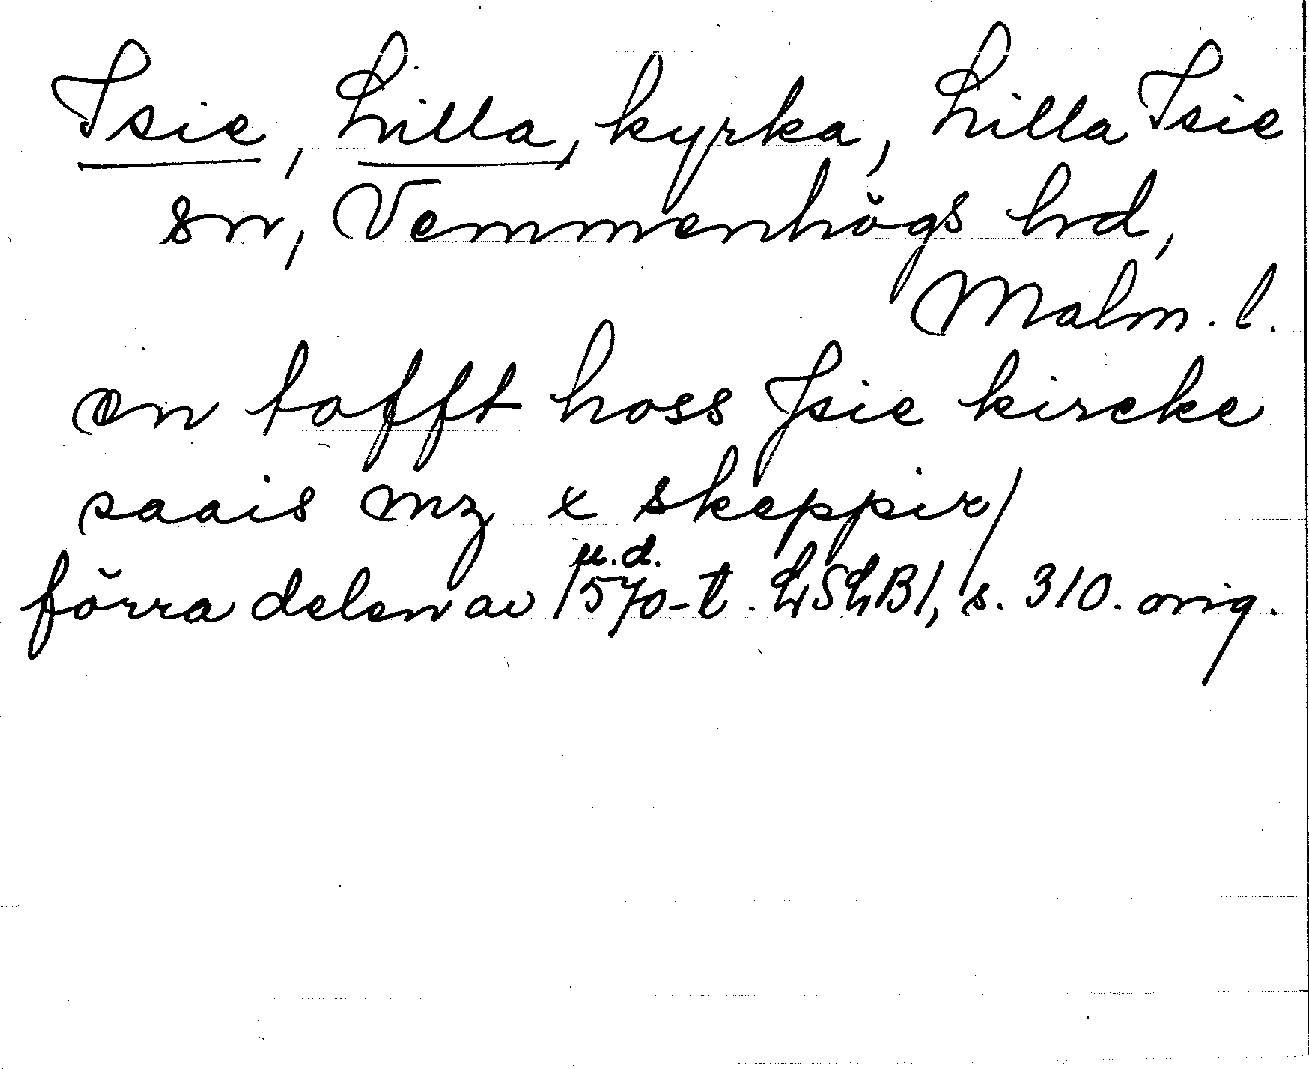 Isie, Lilla, kyrka, Lilla Isie
sn, Vemmenhögs hd,
Malm. l.
en tofft hoss Jsie kircke
saais mz x skeppir/
u.d.
förra delen av 1570-t. LSLB1, s. 310. orig.